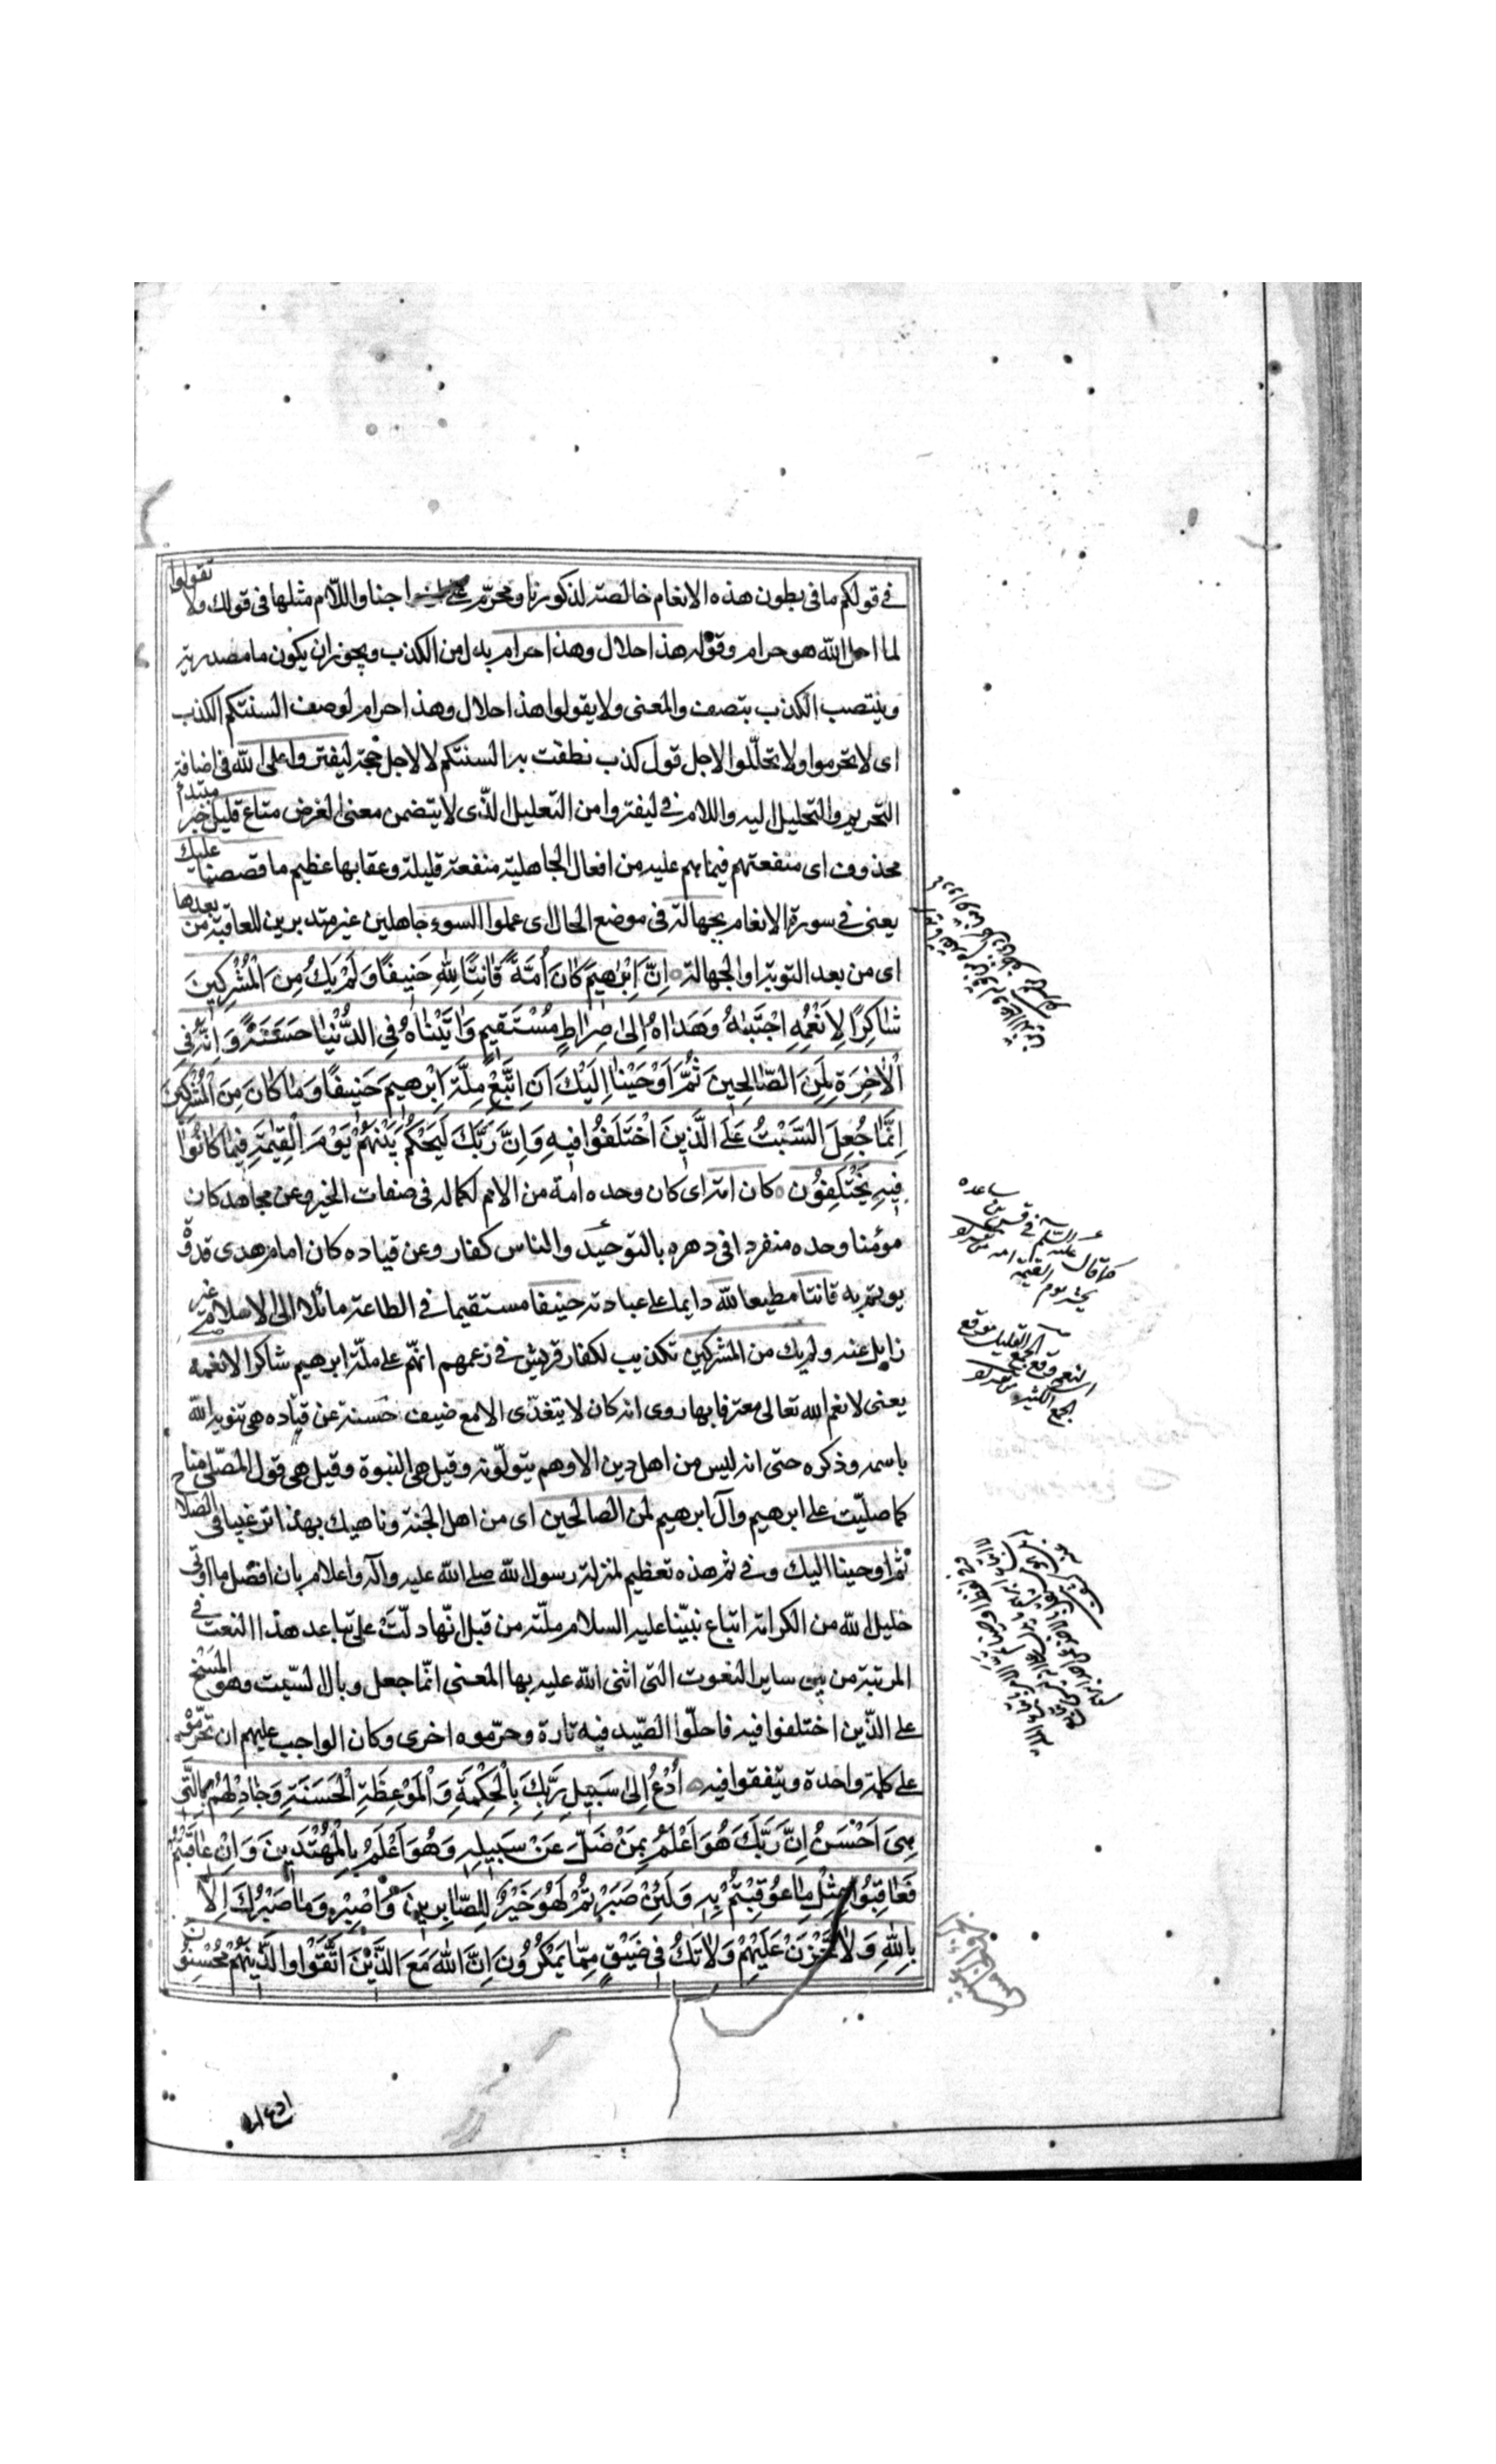 في قولكم ما في بطون هذه الانعام خالصة لذكورنا ومحرّم على ازواجنا واللام مثلها في قولك ولا تقولوا
لما احل الله هو حرام وقوله هذا حلال وهذا حرام بدل من الكذب ويجوز ان يكون ما مصدرية
وينتصب الكذب بتصف والمعنى ولا يقولوا هذا حلال وهذا حرام لوصف السنتكم الكذب
اى لا تحرموا ولا تحلّلوا لاجل قول كذب نطقت به السنتكم لا لاجل حجة ليفتروا على الله في اضافة
التحريم والتحليل اليه واللام في ليفتروا من التعليل الذى لا يتضمن معنى الغرض متاع قليل خبر مبتدأ
محذوف اى منفعتهم فيما هم عليه من افعال الجاهلية منفعة قليلة وعقابها عظيم ما قصصنا عليك
يعنى في سورة الانعام بجهالة في موضع الحال اى عملوا السوء جاهلين غير متدبرين للعاقبة من بعدها
اى من بعد التوبة او الجهالة اِنَّ اِبْرٰهيمَ كَانَ اُمَّةً قَانِتًا لِلّٰهِ حَنيفًا وَلَمْ يَكُ مِنَ الْمُشْرِكينَ
شَاكِرًا لِاَنْعُمِهِ اجْتَبٰيهُ وَهَدَاهُ اِلىٰ صِرَاطٍ مُسْتَقيمٍ وَاٰتَيْنَاهُ فِى الدُّنْيَا حَسَنَةً وَاِنَّهُ فِى
الْاٰخِرَةِ لَمِنَ الصَّالِحينَ ثُمَّ اَوْحَيْنَا اِلَيْكَ اَنِ اتَّبِعْ مِلَّةَ اِبْرٰهيمَ حَنيفًا وَمَا كَانَ مِنَ الْمُشْرِكينَ
اِنَّمَا جُعِلَ السَّبْتُ عَلَى الَّذينَ اخْتَلَفُوا فيهِ وَاِنَّ رَبَّكَ لَيَحْكُمُ بَيْنَهُمْ يَوْمَ الْقِيٰمَةِ فيمَا كَانُوا
فيهِ يَخْتَلِفُونَ كان امة اى كان وحده امة من الامم لكماله في صفات الخير وعن مجاهد كان
مؤمنا وحده منفردا في دهره بالتوحيد والناس كفار وعن قتاده كان امام هدى قدوة
يوتم به قانتا مطيعا لله دايما على عبادته حنيفا مستقيما في الطاعة مائلا الى الاسلام غير
زايل عنه ولم يك من المشركين تكذيب لكفار قريش في زعمهم انهم على ملة ابرهيم شاكرا لانعمه
يعنى لانعم الله تعالى معترفا بها روى انه كان لا يتغذّى الا مع ضيف حسنة عن قتاده هى تنويه الله
باسمه وذكره حتى انه ليس من اهل دين الا وهم يتولّونه وقيل هى النبوة وقيل هى قول المصلّى منا
كما صلّيت على ابرهيم وآل ابرهيم لمن الصالحين اى من اهل الجنة وناهيك بهذا ترغيبا في الصلاح
ثم اوحينا اليك وفي ثم هذه تعظيم لمنزلة رسول الله صلى الله عليه وآله واعلام بان افضل ما اوتى
خليل الله من الكرامة اتباع نبيّنا عليه السلام ملّته من قبل انّها دلّت على تباعد هذا النعت في
المرتبة من بين ساير النعوت التى اثنى الله عليه بها المعنى انّما جعل وبال السّبت وهو المسخ
على الذّين اختلفوا فيه فاحلّوا الصّيد فيه تارة وحرّموه اخرى وكان الواجب عليهم ان يحرّموه
على كلمة واحدة ويتفقوا فيه اُدْعُ اِلىٰ سَبيلِ رَبِّكَ بِالْحِكْمَةِ وَالْمَوْعِظَةِ الْحَسَنَةِ وَجَادِلْهُمْ بِالَّتى
هِىَ اَحْسَنُ اِنَّ رَبَّكَ هُوَ اَعْلَمُ بِمَنْ ضَلَّ عَنْ سَبيلِهِ وَهُوَ اَعْلَمُ بِالْمُهْتَدينَ وَاِنْ عَاقَبْتُمْ
فَعَاقِبُوا بِمِثْلِ مَا عُوقِبْتُمْ بِهِ وَلَئِنْ صَبَرْتُمْ لَهُوَ خَيْرٌ لِلصَّابِرينَ وَاصْبِرْ وَمَا صَبْرُكَ اِلَّا
بِاللّٰهِ وَلَا تَحْزَنْ عَلَيْهِمْ وَلَا تَكُ فى ضَيْقٍ مِمَّا يَمْكُرُونَ اِنَّ اللّٰهَ مَعَ الَّذينَ اتَّقَوْا وَالَّذينَ هُمْ مُحْسِنُونَ